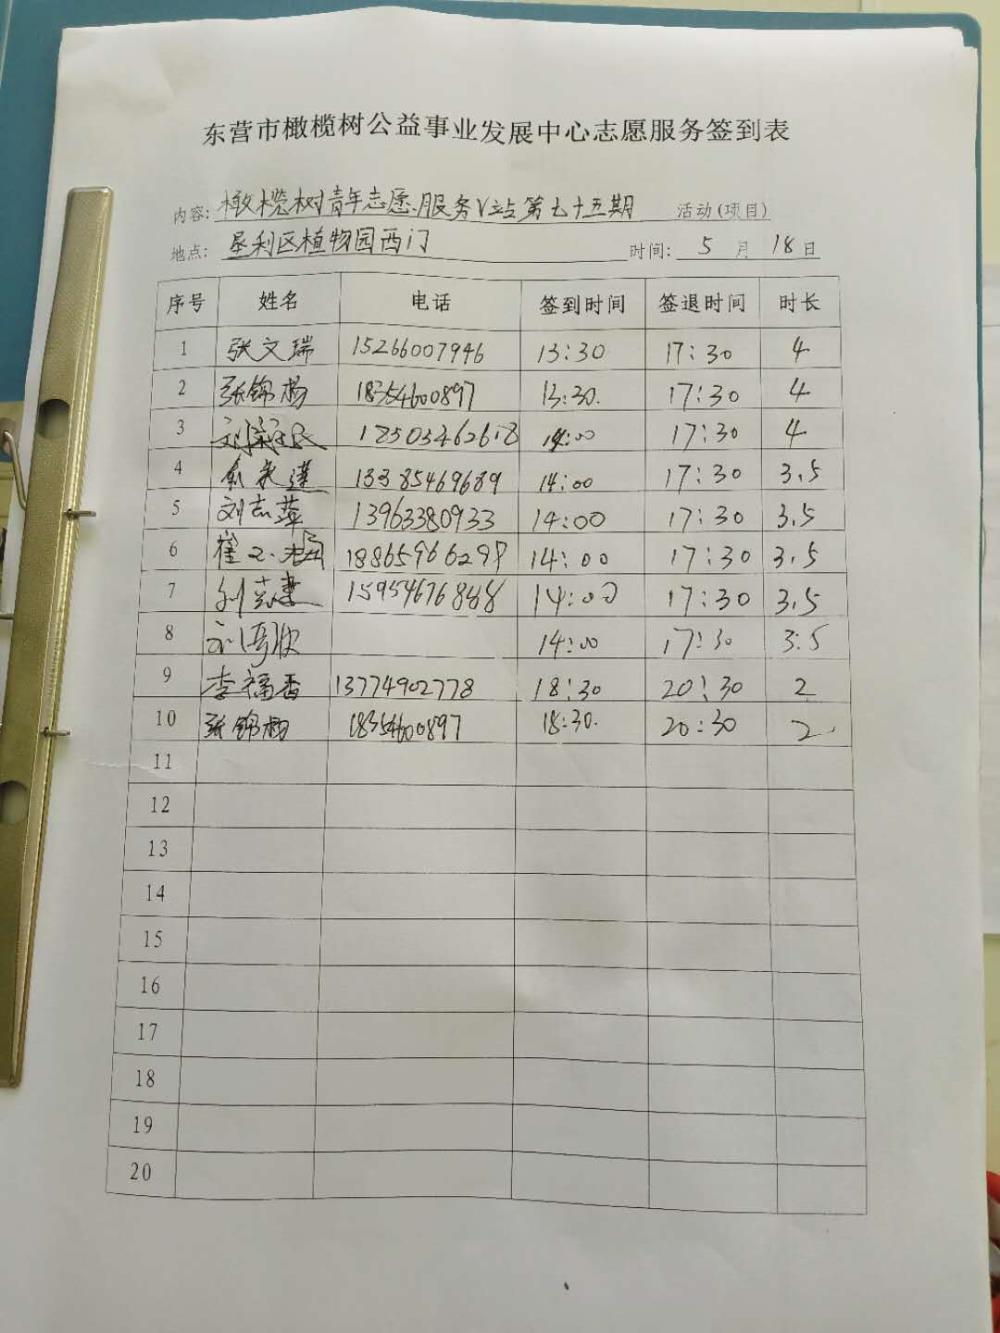 东营市橄榄树公益事业发展中心志愿服务签到表
内容: 橄榄树青年志愿服务V站第七十五期 活动(项目)
地点: 垦利区植物园西门 时间: 5 月 18 日
序号 姓名 电话 签到时间 签退时间 时长
1 张文瑞 15266007946 13:30 17:30 4
2 张锦杨 18354600897 13:30. 17:30 4
3 14:00 17:30 4
4 13385469689 14:00 17:30 3.5
5 刘志萍 13963380933 14:00 17:30 3.5
6 崔 14:00 17:30 3.5
7 14:00 17:30 3.5
8 14:00 17:30 3.5
9 李福香 13774902778 18:30 20:30 2
10 张锦杨 18354600897 18:30. 20:30 2
11
12
13
14
15
16
17
18
19
20